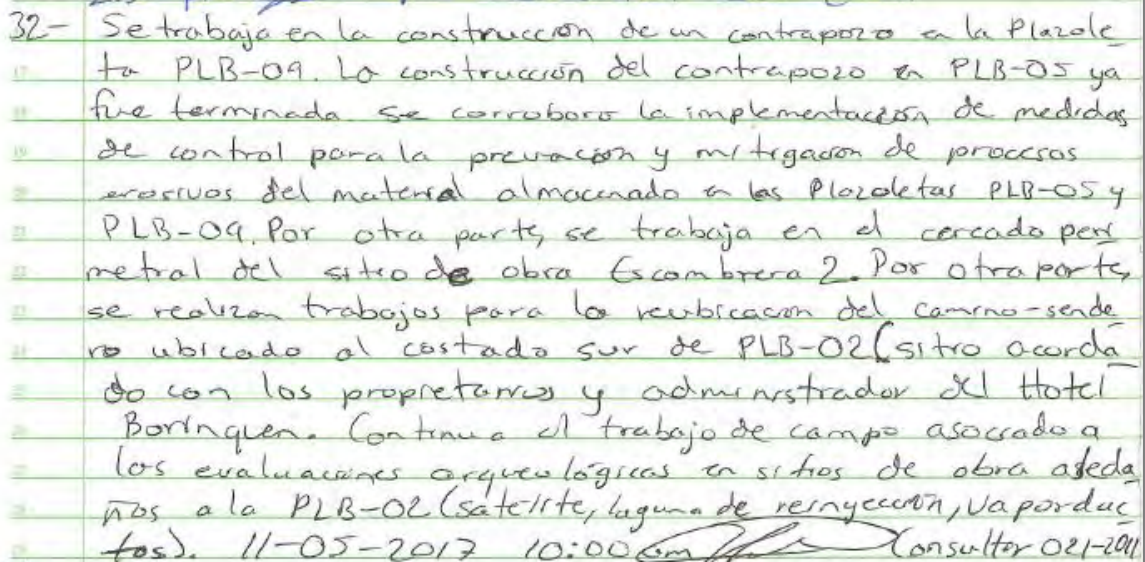 32- Se trabaja en la construcción de un contrapozo en la Plazole
ta PLB-09. La construcción del contrapozo en PLB-05 ya
fue terminada se corroboro la implementación de medidas
de control para la prevación y mitigacion de procesos
erosivos del material almacenado en las Plazoletas PLB-05 y
PLB-09. Por otra parte, se trabaja en el cercado peri
metral del sitio de obra Escombrera 2. Por otra parte,
se realizan trabajos para la reubicacion del camino-sende
ro ubicado al costado sur de PLB-02 (sitio acorda
do con los propietarios y administrador del Hotel
Borinquen. Continua el trabajo de campo asociado a
las evaluaciones arqueológicas en sitios de obra aleda
ños a la PLB-02 (satélite, laguna de reinyección, Vaporduc
tos). 11-05-2017 10:00 am Consultor 021-2011